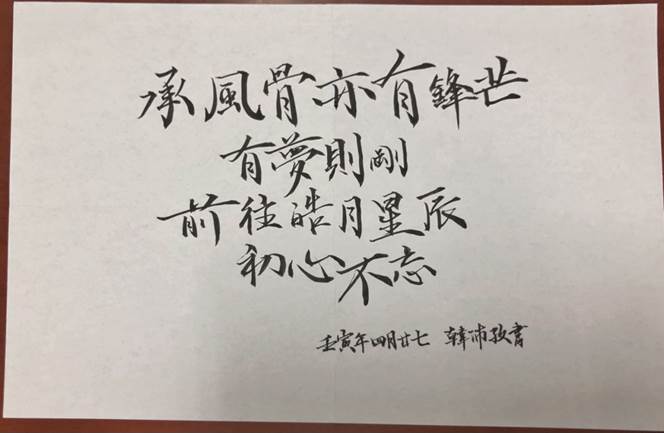 承風骨亦有鋒芒
有夢則剛
前往皓月星辰
初心不忘
壬寅年四月廿七 韓沛孜書